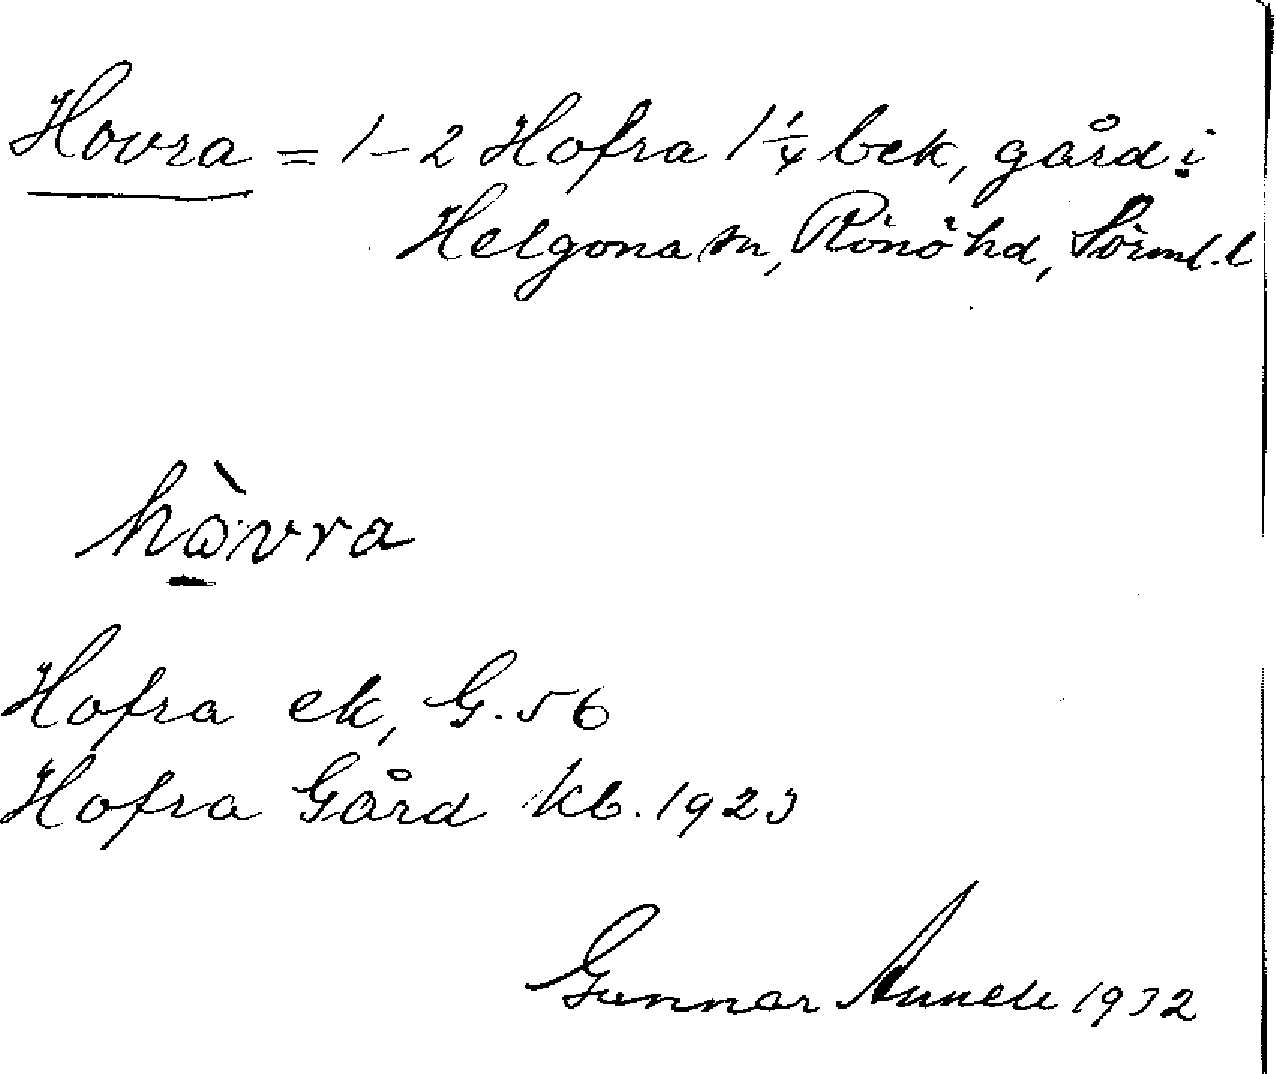 Hovra = 1-2 Hofra 1 1/4 bek, gård i
Helgona sn, Rönö hd, Sörml. l
hò̱vra
Hofra ek, G. 56
Hofra Gård kb. 1923
Gunnar 1932